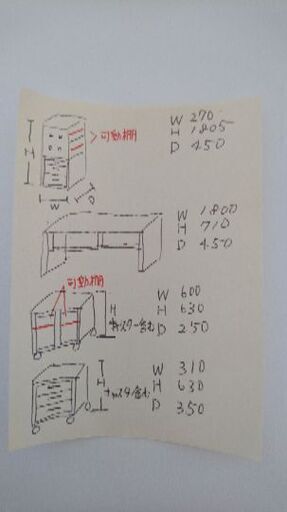 W 270
H 1805
D 450
可動棚
H
W
D
W 1800
H 710
D 450
可動棚
W 600
H 630
D 250
H
キャスター含む
W 310
H 630
D 350
H
キャスター含む